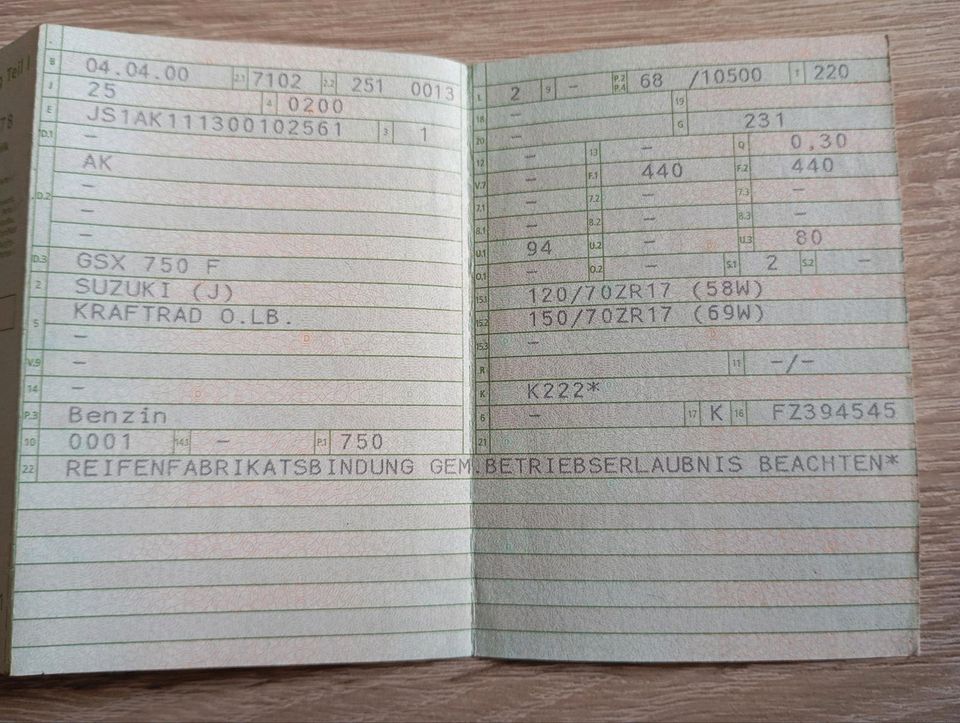 B 04.04.00 2.1 7102 2.2 251 0013
J 25 4 0200
E JS1AK111300102561 3 1
D.1 –
AK
D.2 –
–
D.3 GSX 750 F
2 SUZUKI (J)
5 KRAFTRAD O.LB.
–
V.9 –
14 –
P.3 Benzin
10 0001 14.1 – P.1 750
L 2 9 – P.2 P.4 68 /10500 T 220
18 – 19
20 – G 231
12 – 13 – Q 0,30
V.7 – F.1 440 F.2 440
7.1 – 7.2 – 7.3 –
8.1 – 8.2 – 8.3 –
U.1 94 U.2 – U.3 80
O.1 – O.2 – S.1 2 S.2 –
15.1 120/70ZR17 (58W)
15.2 150/70ZR17 (69W)
15.3 –
R 11 –/–
K K222*
6 – 17 K 16 FZ394545
21
22 REIFENFABRIKATSBINDUNG GEM.BETRIEBSERLAUBNIS BEACHTEN*